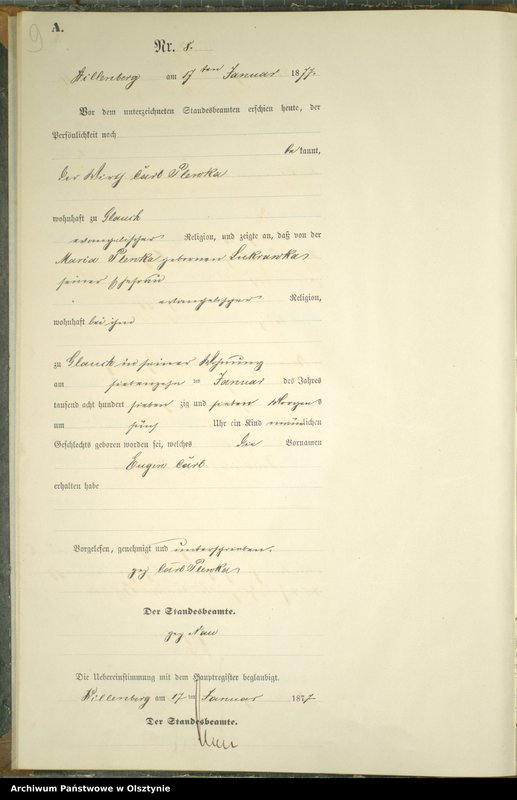 9
A.
Nr. 8.
Willenberg am 17 ten Januar 1877.
Vor dem unterzeichneten Standesbeamten erschien heute, der
Persönlichkeit nach
be kannt,
der Wirth Carl Plewka
wohnhaft zu Glauch
evangelischer Religion, und zeigte an, daß von der
Maria Plewka gebornen Sukrawka
seiner Ehefrau
evangelischer Religion,
wohnhaft bei ihm
zu Glauch in seiner Wohnung
am siebenzehn ten Januar des Jahres
tausend acht hundert sieben zig und sieben Morgens
um fünf Uhr ein Kind männlichen
Geschlechts geboren worden sei, welches die Vornamen
Eugen Carl
erhalten habe
Vorgelesen, genehmigt und unterschrieben.
gez Carl Plewka
Der Standesbeamte.
gez Nau
Die Uebereinstimmung mit dem Hauptregister beglaubigt.
Willenberg am 17 ten Januar 1877
Der Standesbeamte.
Nau
Archiwum Państwowe w Olsztynie